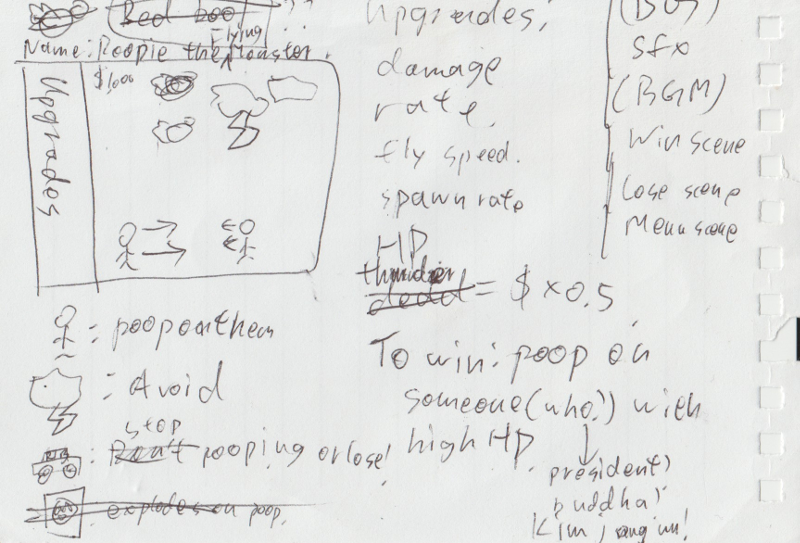 Bed boo
Flying
Name: Poopie the Monster.
Upgrades
$1,000
: poop on them
: Avoid
stop
: Don't pooping or lose!
explodes on poop.
Upgrades:
damage
rate
fly speed.
spawn rate
HP
thunder
= $ x0.5
To win: poop on
someone (who?) with
high HP
president?
buddha?
Kim Jong un!
(BG)
sfx
(BGM)
Win scene
Lose scene
Menu scene